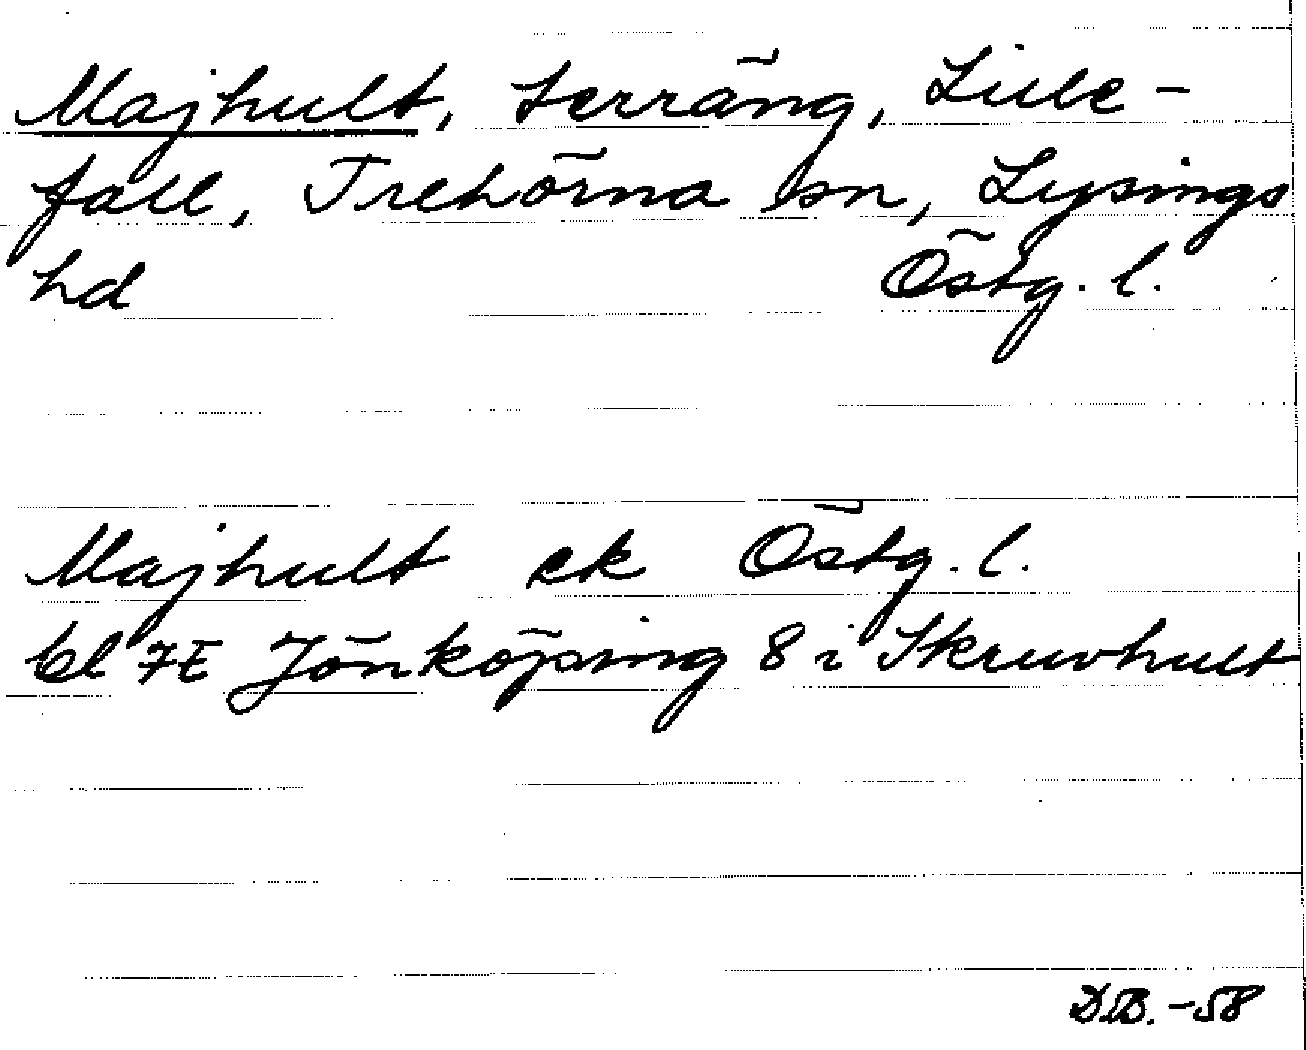 Majhult, terräng, Lille-
fall, Trehörna sn, Lysings
hd Östg. l.
Majhult ek Östg. l.
bl 7E Jönköping 8 i Skruvhult
DB. -58